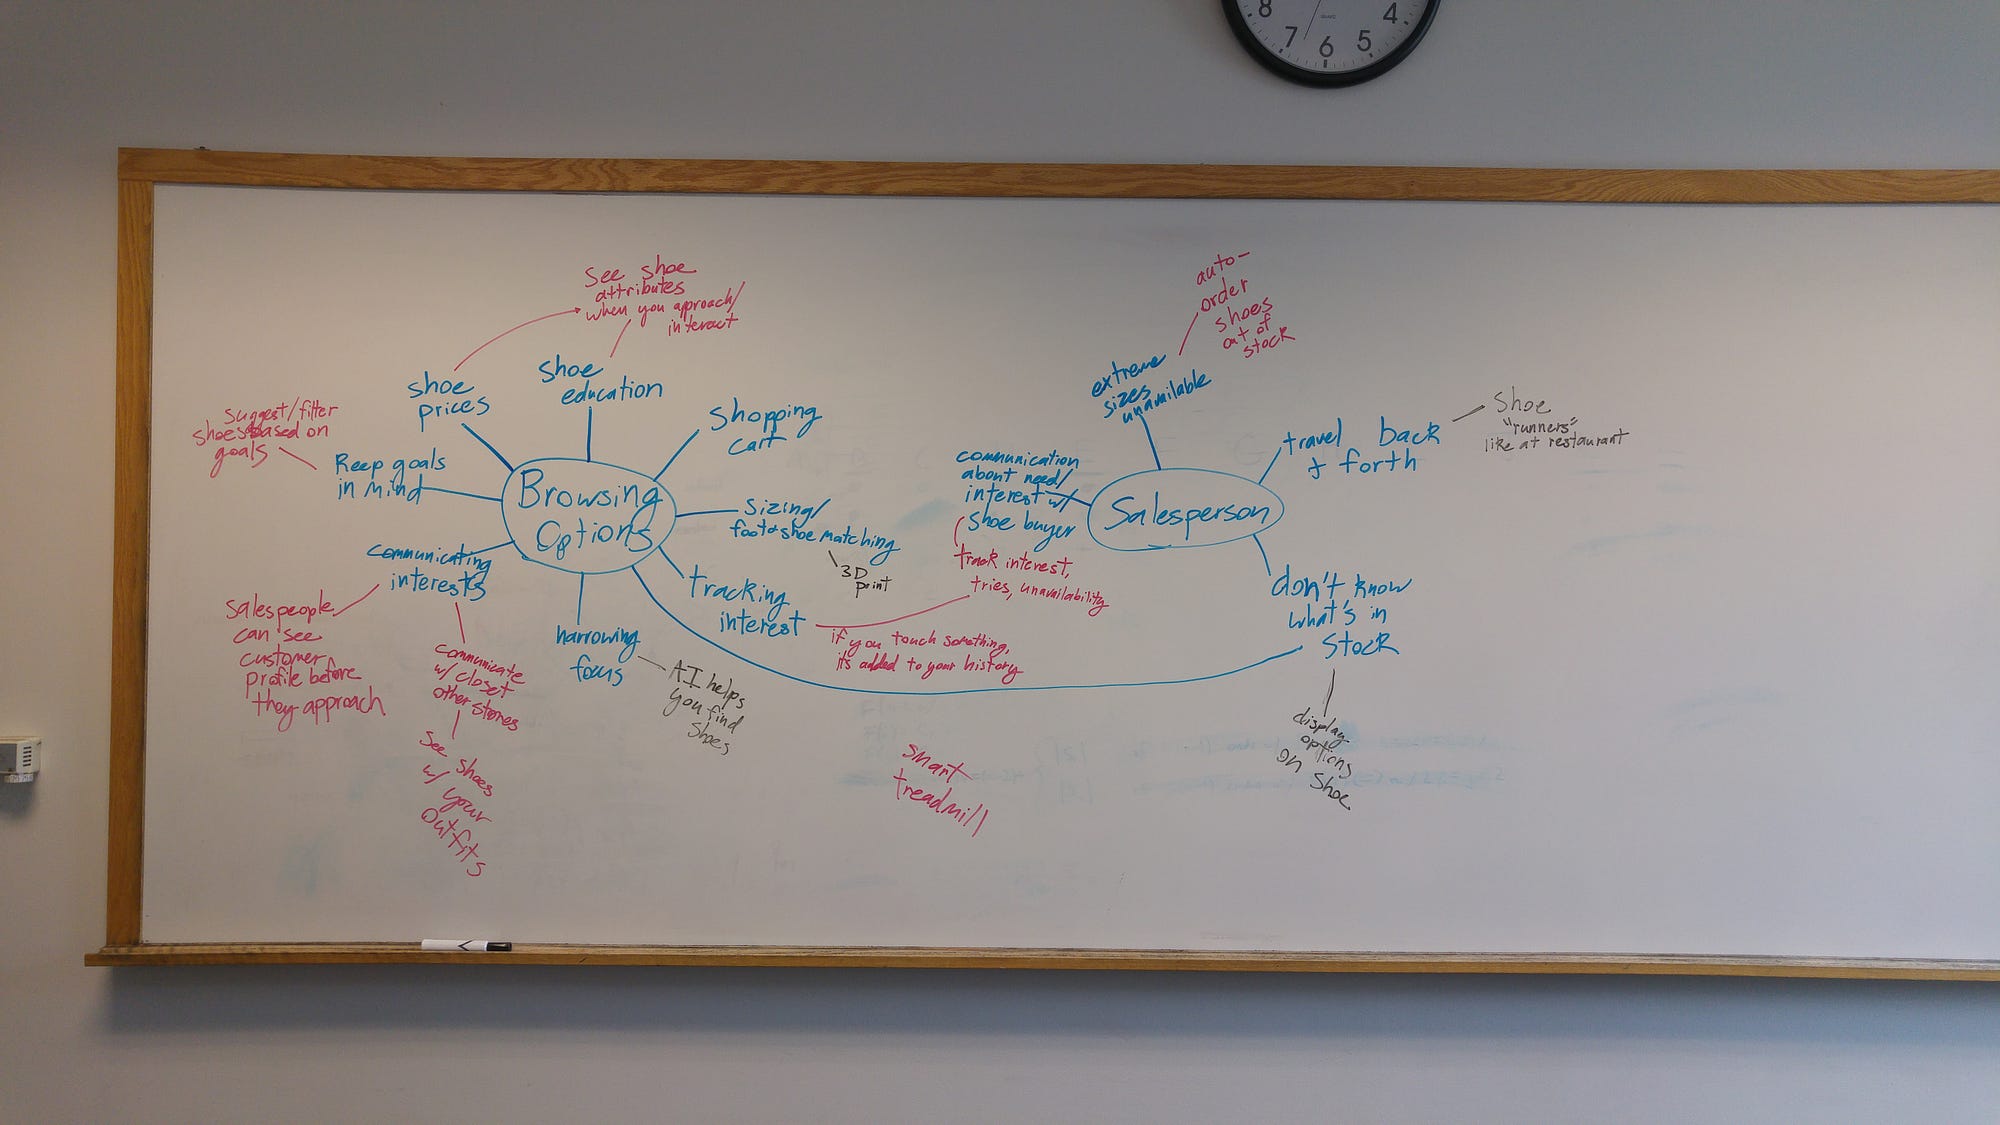 8
7
6
5
4
QUARTZ
See shoe
attributes
when you approach/
interact
shoe
prices
shoe
education
Shopping
cart
suggest/filter
shoes based on
goals
Keep goals
in mind
Browsing
Options
Sizing/
foot & shoe matching
3D
print
communicating
interests
tracking
interest
Salespeople
can see
customer
profile before
they approach
communicate
w/ closet
other stores
see shoes
w/ your
outfits
narrowing
focus
AI helps
you find
shoes
if you touch something,
it's added to your history
smart
treadmill
auto-
order
shoes
out of
stock
extreme
sizes
unavailable
communication
about need/
interest w/
shoe buyer
track interest,
tries, unavailability
Salesperson
travel back
+ forth
Shoe
"runners"
like at restaurant
don't know
what's in
stock
display
options
on shoe